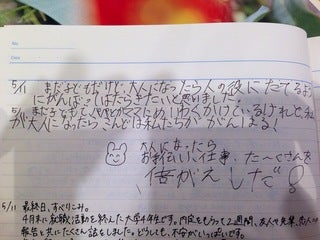 No.
Date
5/11 まだ子どもだけど、大人になったら人の役にたてるように
にがんばってはたらきたいと思いました。
5/11 まだ子どもで、パパとかママにめいわくかけているけれど、私
が大人になったら こんどは私たちが、がんばる!
大人になったら
お手伝い、仕事、たーくさんを
倍がえしだ!
5/11 最終日、すべりこみ。
4月末に就職活動を終えた大学4年生です。内定をもらって2週間、友人や先輩、恋人の
報告を共にたくさん話をしました。どうしても、不安がいっぱいです。